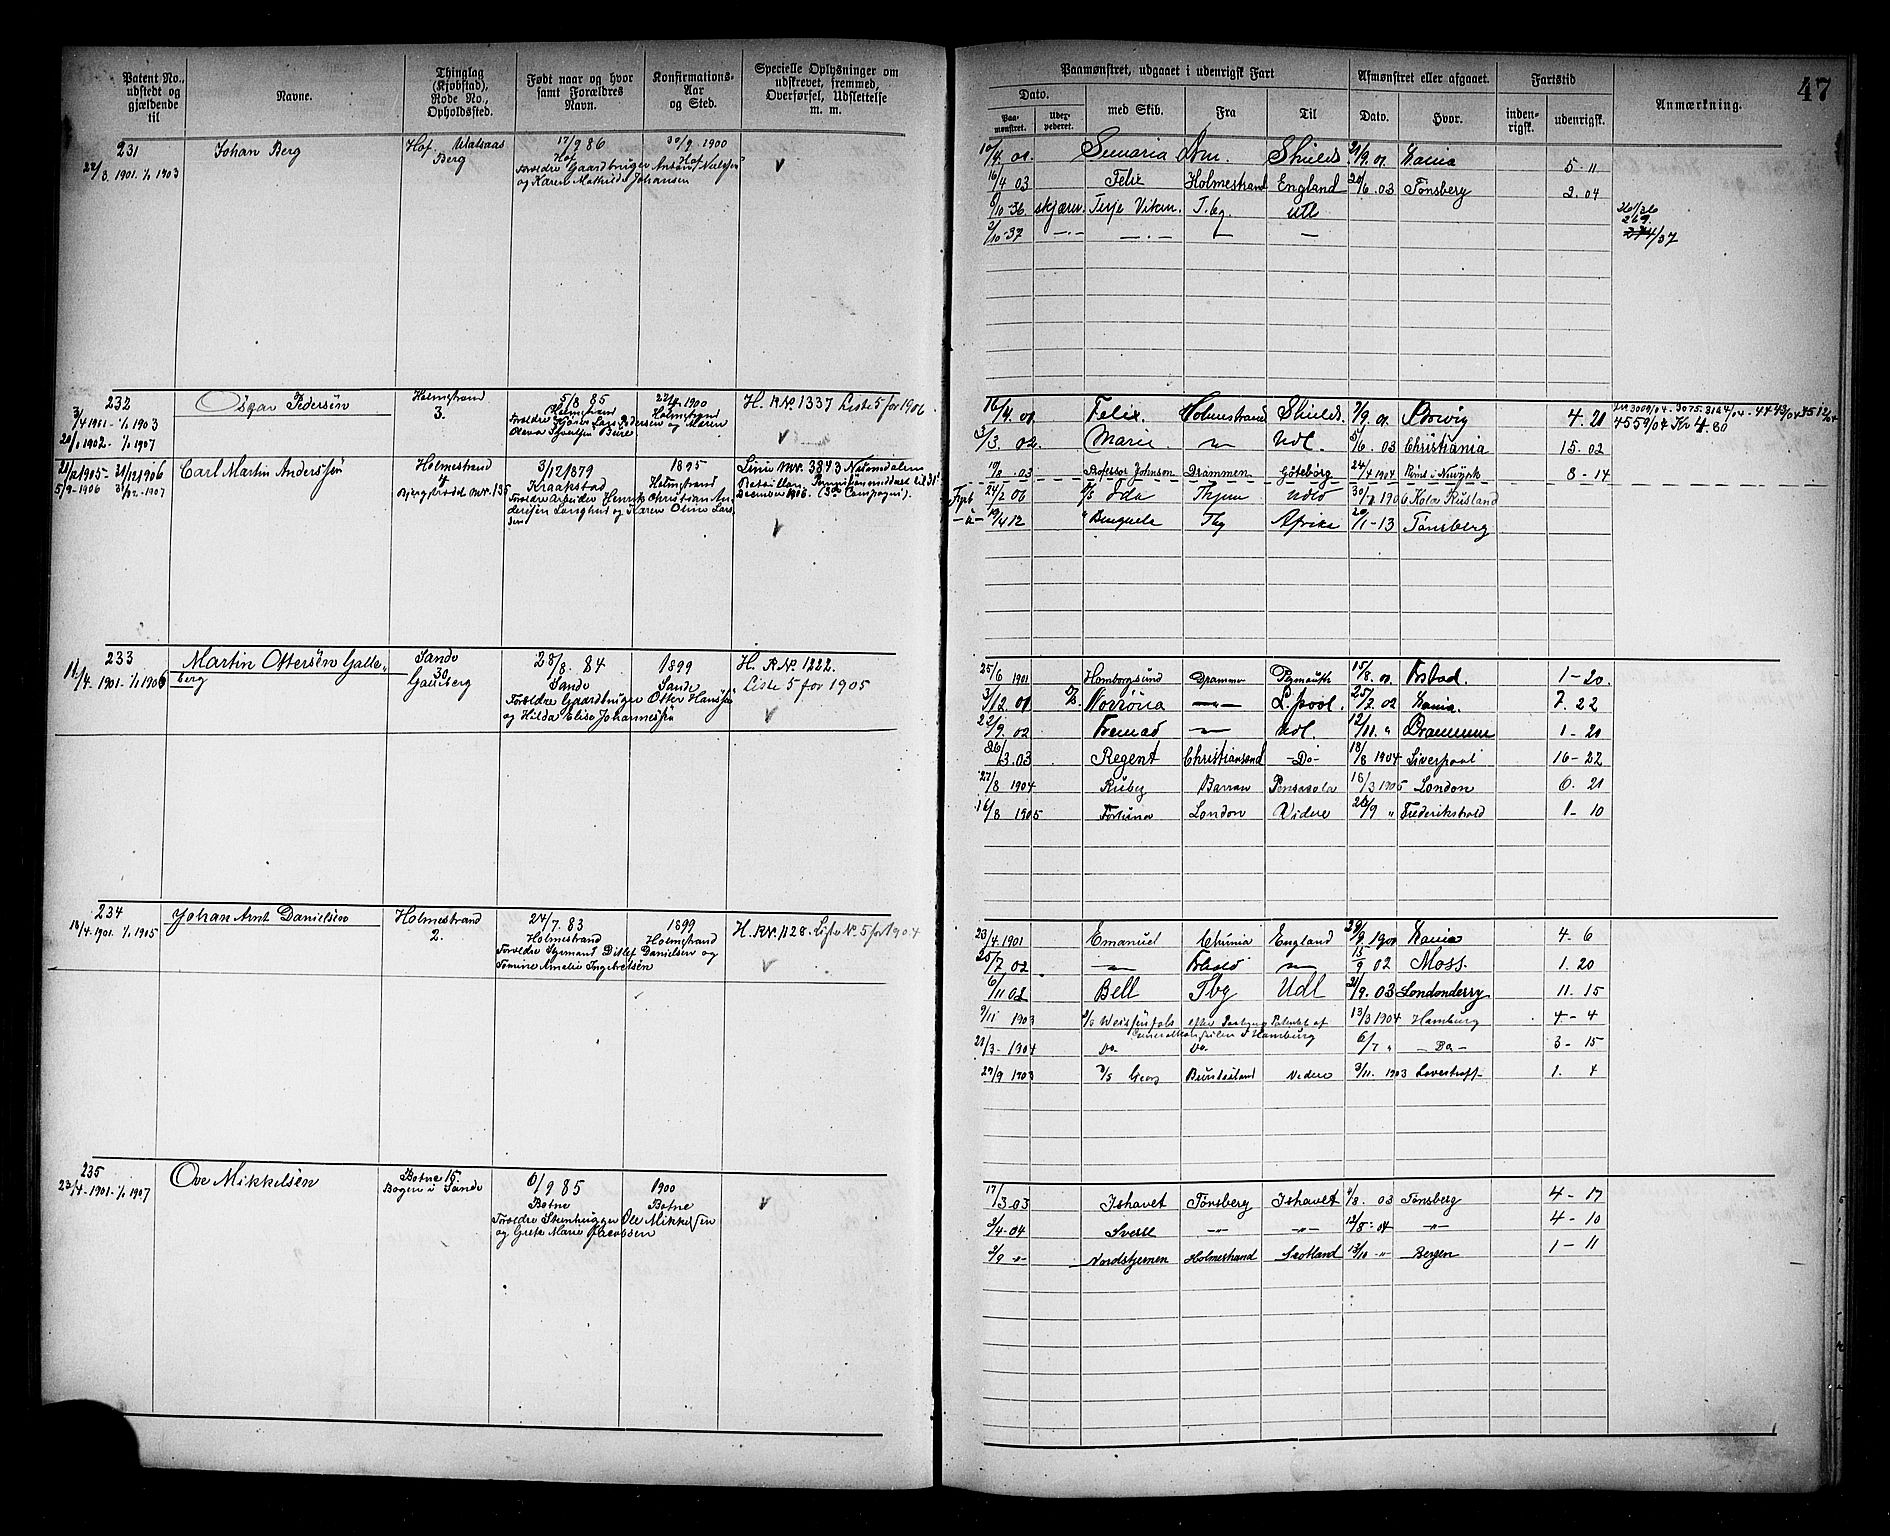 47
Patent No., udstedt og gjældende til
Navne.
Thinglag (Kjøbstad), Rode No., Opholdssted.
Født naar og hvor samt Forældres Navn.
Konfirmations-Aar og Sted.
Specielle Oplysninger om udskrevet, fremmed, Overførsel, Udslettelse m. m.
Paamønstret, udgaaet i udenrigsk Fart
Afmønstret eller afgaaet.
Fartstid
Anmærkning.
Dato.
med Skib.
Fra
Til
Dato.
Hvor.
inden-rigsk.
udenrigsk.
Paa-mønstret.
231
22/3 1901 1/1 1903
Johan Berg
Hof
Berg
17/9 86
Hof
Forældre Gaardbruger Anton Nielsen
og Karen Mathilde Johansen
30/9 1900
Hof
10/4 01 Semaria Dm. Shields 21/9 01 Xania 5-11
16/4 03 Felix Holmestrand England 20/6 03 Tønsberg 2.04
8/10-36 skjærer Terje Viken T.bg. utl
2/10-37 —.— —.— — —
232
3/4 1901 - 1/1 1903
20/1 1902 - 1/1 1907
Oscar Pedersen
Holmestrand
3.
5/8 85
Holmestrand
1900
Holmestrand
H. RNo. 1337 Liste 5 for 1906
16/4 01 Felix Holmestrand Shields 7/9 01 Brevig 4.21
3/3 02. Marie — Udl. 5/6 03 Christiania 15.02
10/8 03 Professor Johnson Drammen Göteborg 24/4 1904 8-14
21/2 1905 - 31/12 1906
5/9-1906 31/12-1907
Carl Martin Andersen
Holmestrand
4
3/12 1879
Kraakstad
Forældre Arbeider Henrik Christian An-
dersen Langhus og Karen Oline Lars-
sen
1895
Holmestrand
Linie No. 3843 Numedalens
24/2 06 D/S Ida Udld 30/7 1906 Kola Rusland
19/4 12 " Benguela Tbg Afrika 20/1-13 Tønsberg
233
11/4-1901-1/1 1906
Martin Ottersen Galle-
berg
Sande
30
Galleberg
28/8. 84
Sande
Forældre Gaardbruger Otter Hansen
og Hilda Elise Johannesen
1899
Sande
H. RNo. 1222.
Liste 5 for 1905
25/6 1901 Homborgsund Drammen 15/8. 01 Fr.stad. 1-20.
3/12 01 Norrøna —"— L.pool. 25/7 02 Xania. 7.22
22/9. 02 Fremad — Udl. 12/11. " Drammen 1-20
26/3.03 Regent Christiansand -Do- 18/8 1904 Liverpool 16-22
27/8 1904 Ruby Barrow Pensacola 16/3 1905 London 6.21
16/8 1905 Fortuna London Videre 26/9 " Frederikshald 1-10
234
18/4.1901. 1/1 1905
Johan Arnt Danielsen
Holmestrand
2.
24/7. 83
Holmestrand
Forældre Sømand Ditlef Danielsen og
Tomine Amalie Ingebretsen
1899
Holmestrand
H. RNo. 1128. Liste No. 5 for 1904
23/4 1901 Emanuel Xhania England 29/9 1901 Xania 4-6
25/7 02 — Fr.hald — 13/9 02 Moss. 1.20
6/11 02 Bell Tbg Udl 21/9. 03 Londonderry 11.15
9/11 1903 D/S Weissenfels 13/3 1904 Hamburg 4-4
Generalkonsulen i Hamburg
21/3-1904 Do- Do- 6/7 " -Do- 3-15
29/9 1903 D/S Georg Videre 9/11. 1903 1. 4
235
23/4-1901-1/1 1907
Ove Mikkelsen
Botne 15.
Bogen i Sande
6/9 85
Botne
Forældre Stenhugger Ole Mikkelsen
og Grete Marie Jacobsen
1900
Botne
17/3-03 Ishavet Tønsberg Ishavet 4/8. 03 Tønsberg 4-17
2/4-04 Sverre —"— —"— 12/8-04 —"— 4-10
2/9 -"- Nordstjernen Holmestrand Scotland 13/10 -"- Bergen 1-11